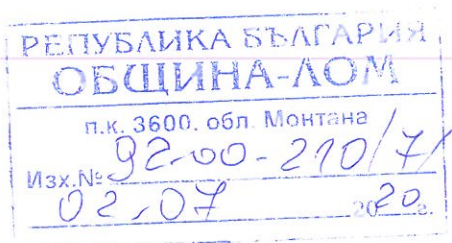 РЕПУБЛИКА БЪЛГАРИЯ
ОБЩИНА-ЛОМ
п.к. 3600. обл. Монтана
Изх.№ 92-00-210/7/
02.07 2020г.